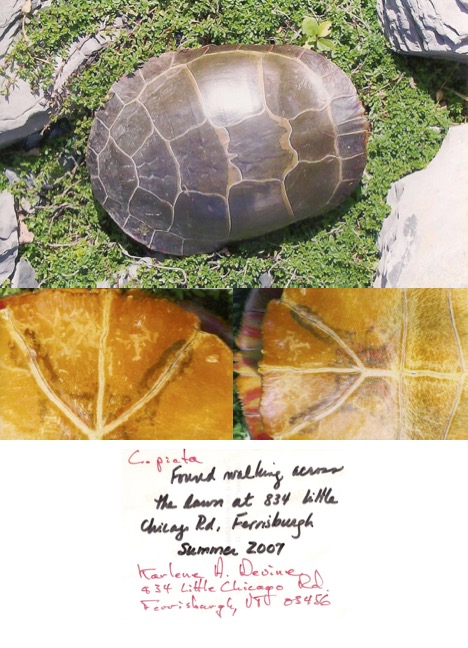 C. picta
Found walking across
the lawn at 834 Little
Chicago Rd, Ferrisburgh
Summer 2007
Karlene A. Devine
834 Little Chicago Rd.
Ferrisburgh, VT 05456